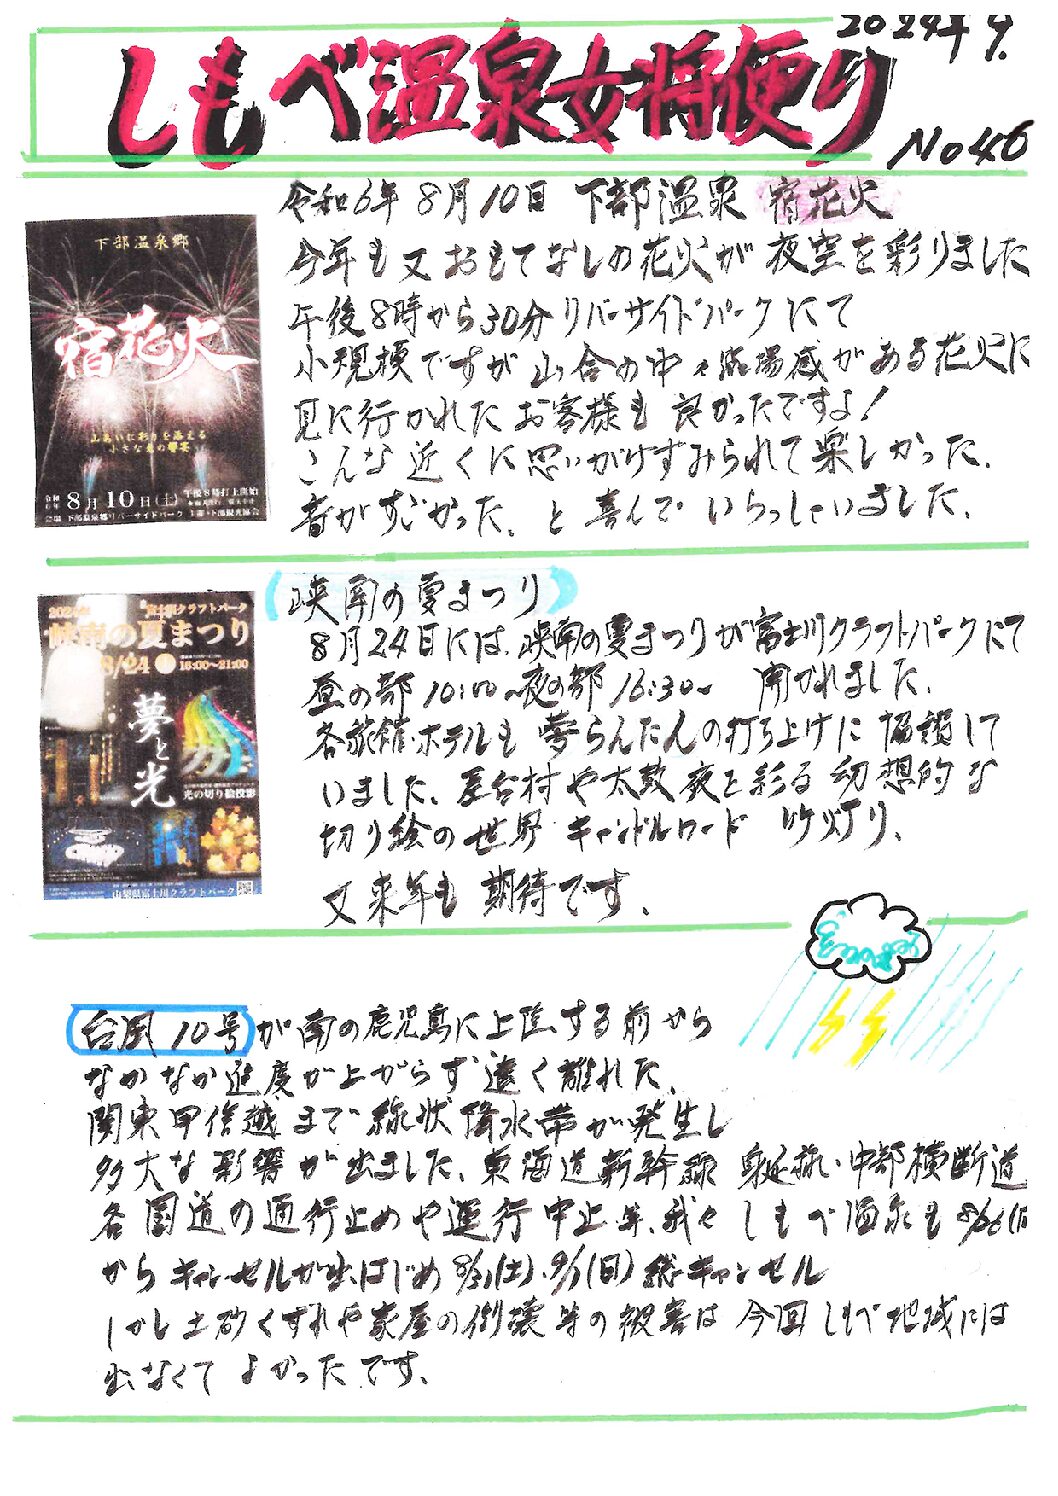 2024年9.
しもべ温泉女将便り
No46
令和6年 8月10日 下部温泉 宿花火
今年も又おもてなしの花火が 夜空を彩りました
午後8時から30分 リバーサイドパークにて
小規模ですが 山合の中々臨場感がある花火に
見に行かれたお客様も 良かったですよ!
こんな近くに思いがけずみられて楽しかった.
音がすごかった. と 喜んで いらっしゃいました.
下部温泉郷
宿花火
山あいに彩りを添える
小さな夏の響宴
令和6年 8月10日(土) 午後8時打上開始
会場 下部温泉郷リバーサイドパーク 主催・下部観光協会
(峡南の夏まつり)
8月24日には、峡南の夏まつりが富士川クラフトパークにて
昼の部 10:00~夜の部 16:30~ 開かれました.
各旅館・ホテルも 夢らんたんの打ち上げに 協賛して
いました、屋台村や太鼓 夜を彩る 幻想的な
切り絵の世界 キャンドルロード 竹灯り、
又来年も 期待です、
2024年 富士川クラフトパーク
峡南の夏まつり
8/24 土 16:00~21:00
夢と光
光の切り絵投影
山梨県富士川クラフトパーク
台風10号が南の鹿児島に上陸する前から
なかなか進度が上がらず遠く離れた、
関東甲信越まで 線状降水帯が発生し
多大な影響が出ました、東海道新幹線 身延線・中部横断道
各国道の通行止めや運行中止等、我々 しもべ温泉も 8/26(月
からキャンセルが出はじめ 8/31(土)・9/1(日) 総キャンセル
しかし土砂くずれや家屋の倒壊等の被害は 今回しもべ地域には
出なくて よかったです.